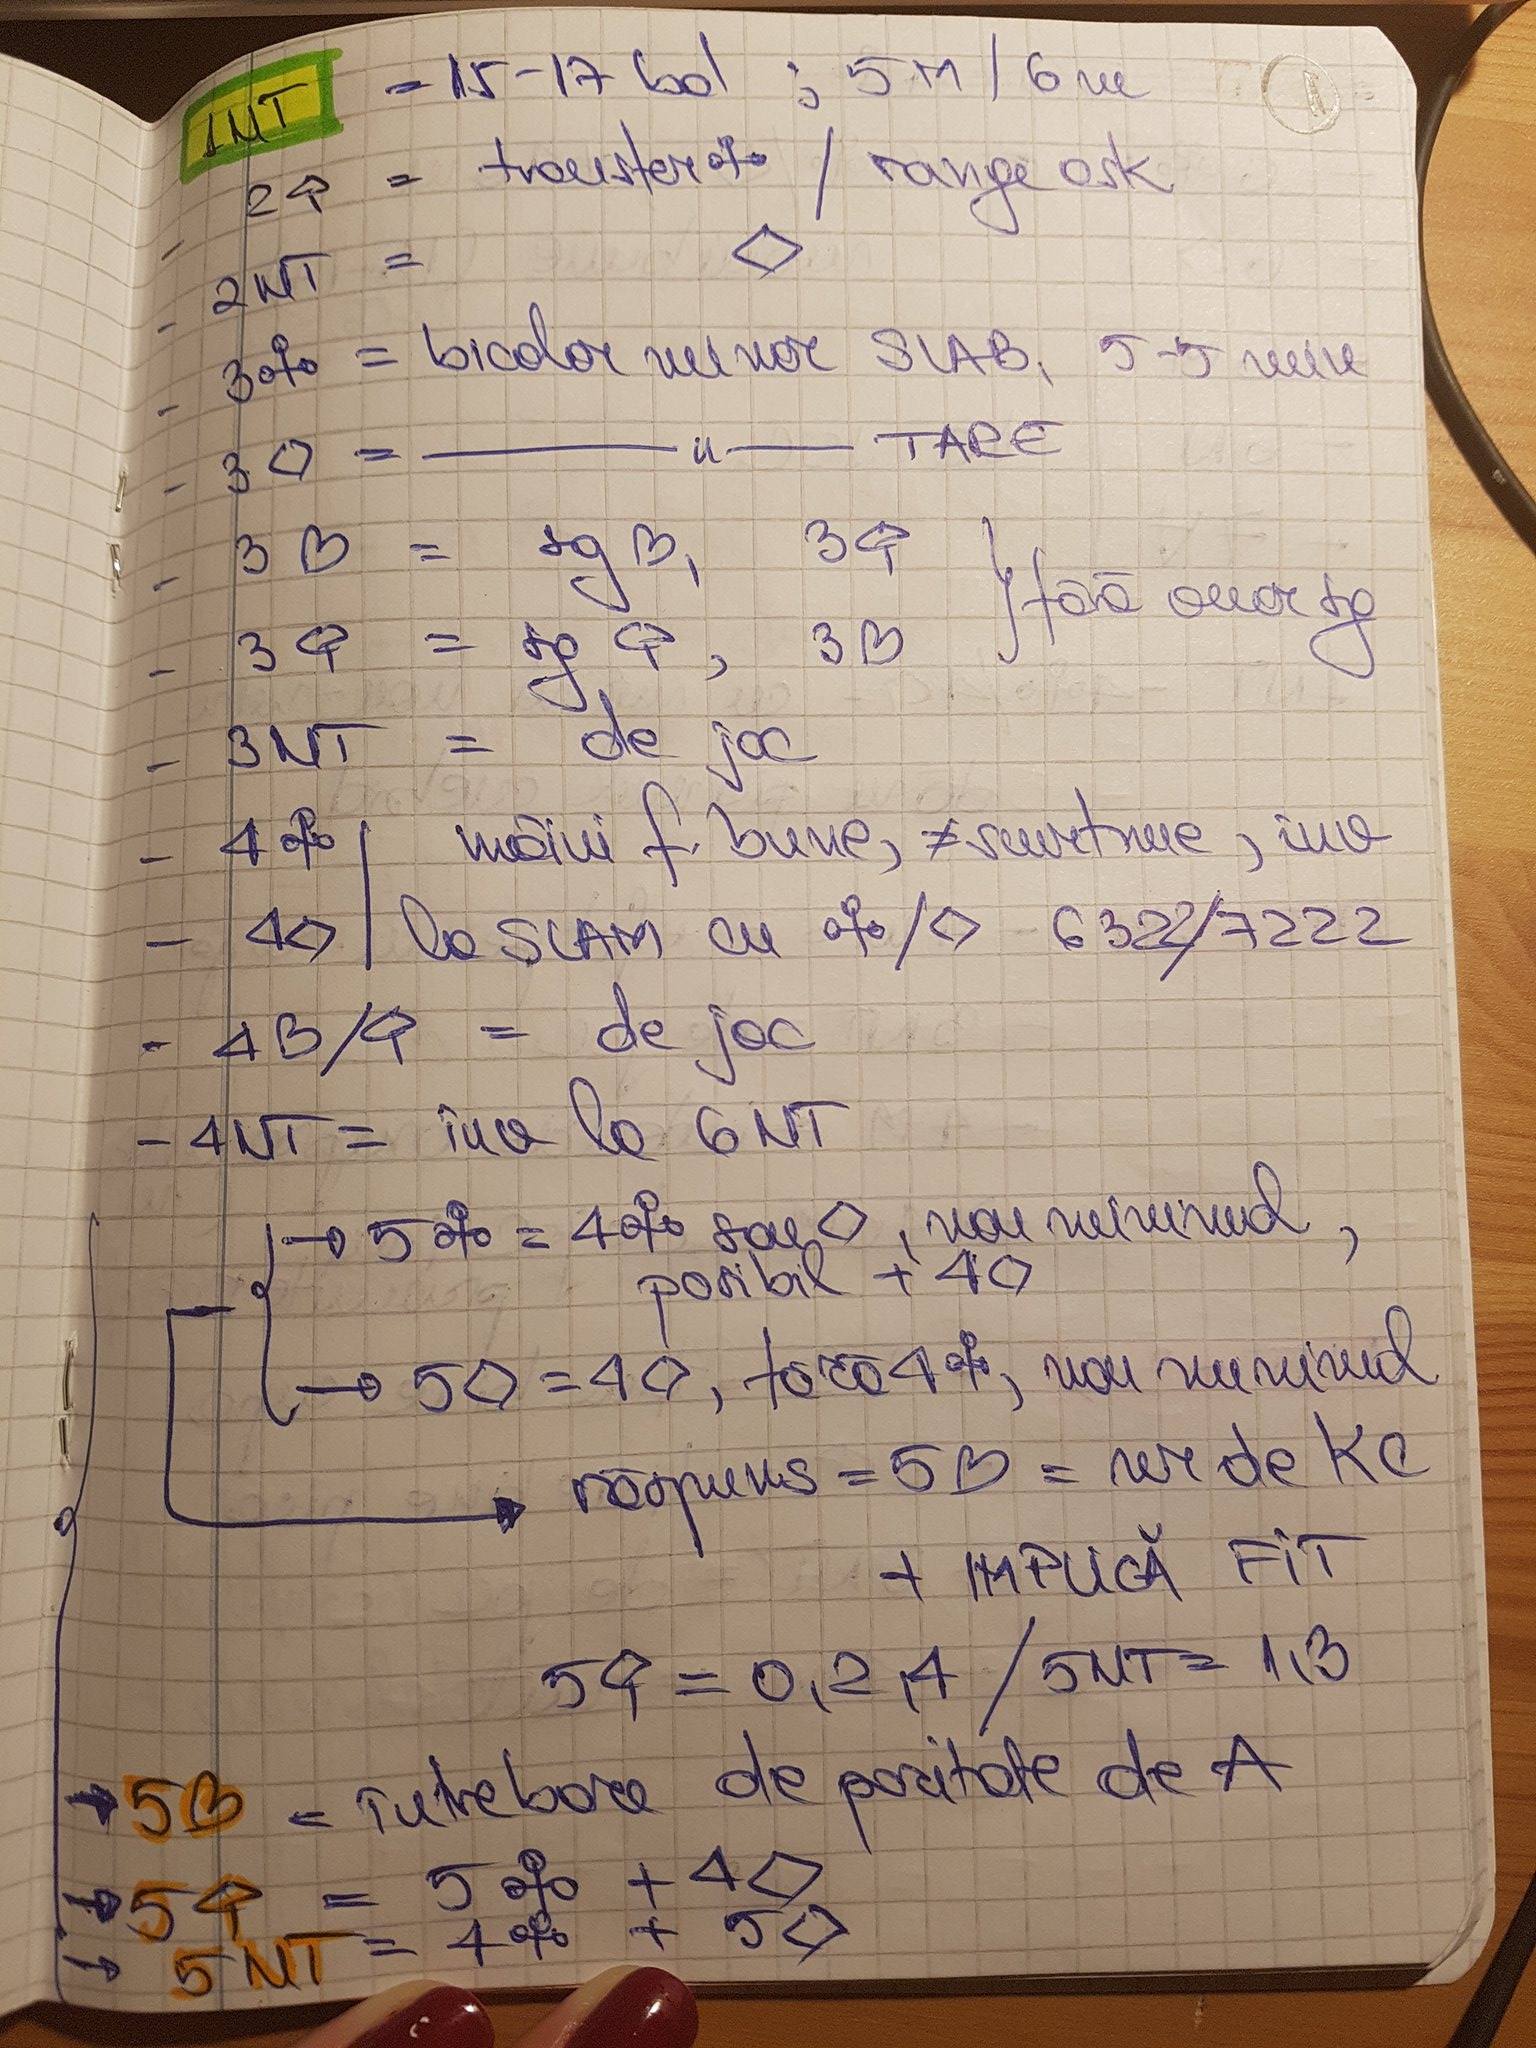 1NT = 15-17 bal ; 5M / 6m
- 2♠ = transfer ♣ / range ask
- 2NT = ♢
- 3♣ = bicolor minor SLAB, 5-5 min
- 3♢ = —— " —— TARE
- 3♡ = sg ♡, 3♠ } fără onor sg
- 3♠ = sg ♠, 3♡
- 3NT = de joc
- 4♣ | mâini f. bune, ≠ smtme, inv
- 4♢ | la SLAM cu ♣/♢ 6322/7222
- 4♡/♠ = de joc
- 4NT = inv la 6NT
→ 5♣ = 4♣ sau ♢, non minimal,
posibil + 4♢
→ 5♢ = 4♢, fără 4♣, non minimal
răspuns = 5♡ = nr de KC
+ IMPLICĂ FIT
5♠ = 0,2,4 / 5NT = 1,3
→ 5♡ = întrebare de paritate de A
→ 5♠ = 5♣ + 4♢
→ 5NT = 4♣ + 5♢